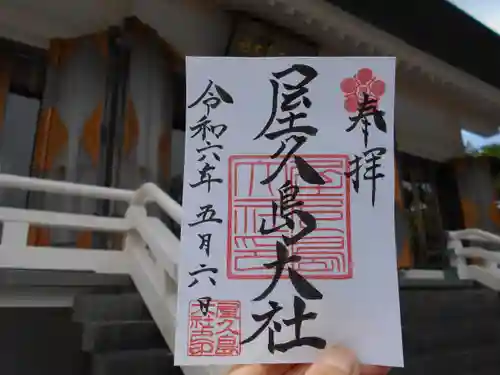 奉拝
屋久島大社
令和六年五月六日
屋久島
大社之印